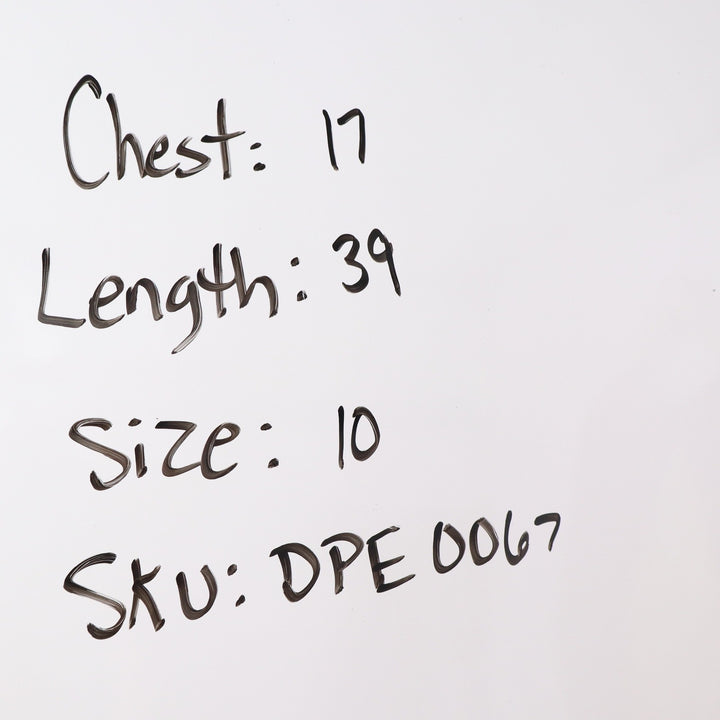 Chest: 17
Length: 39
Size: 10
SKU: DPE 0067